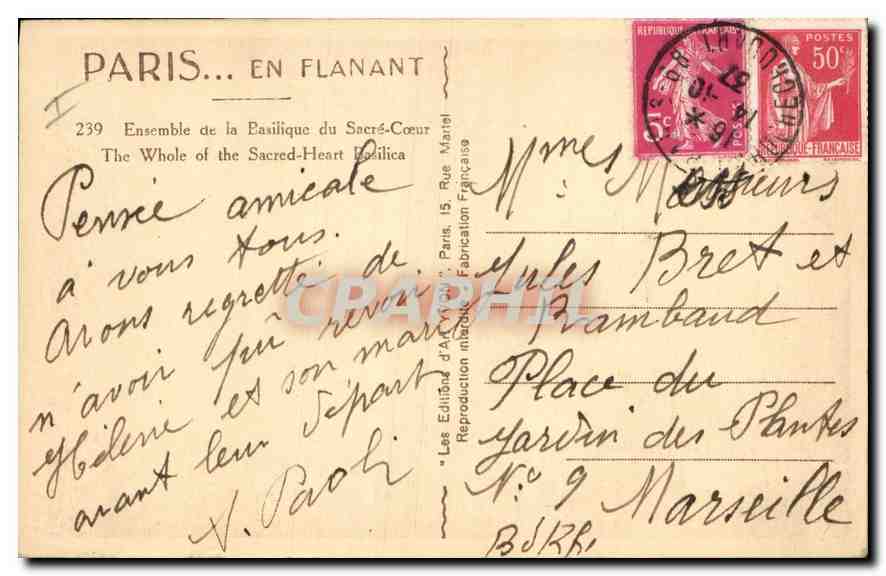 PARIS... EN FLANANT
239 Ensemble de la Basilique du Sacré-Cœur
The Whole of the Sacred-Heart Basilica
Pensée amicale
à vous tous.
Avons regretté de
n'avoir pû revoir
Hélène et son mari
avant leur départ
Paoli
"Les Editions d'Art YVON", Paris, 15, Rue Martel
Reproduction interdite - Fabrication Française
REPUBLIQUE FRANÇAISE
POSTES
POSTES
50c
REPUBLIQUE-FRANÇAISE
16 *
14 -10
37
Mmes Messieurs
Jules Bret et
Rambaud
Place du
Jardin des Plantes
N° 9 Marseille
B d Rh.
CPARHIL